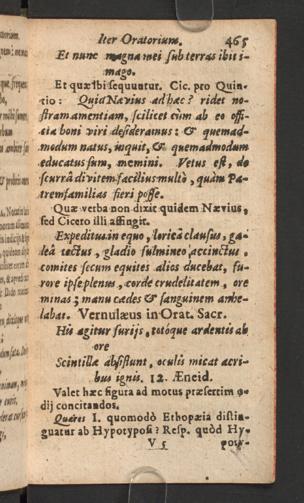 Iter Oratorium. 465
Et nunc magna mei sub terras ibit i-
mago.
Et quæ ibi sequuntur. Cic. pro Quin-
tio: Quid Nævius ad hæc? ridet no-
stram amentiam, scilicet cùm ab eo offi-
cia boni viri desideramus: & quemad-
modum natus, inquit, & quemadmodum
educatus sum, memini. Vetus est, de
scurrâ divitem facilius multò, quàm Pa-
tremfamilias fieri posse.
Quæ verba non dixit quidem Nævius,
sed Cicero illi affingit.
Expeditus in equo, loricâ clausus, ga-
leâ tectus, gladio fulmineo accinctus,
comites secum equites alios ducebat, fu-
rore ipse plenus, corde crudelitatem, ore
minas; manu cædes & sanguinem anhe-
labat. Vernulæus in Orat. Sacr.
His agitur furijs, totóque ardentis ab
ore
Scintillæ absistunt, oculis micat acri-
bus ignis. 12. Æneid.
Valet hæc figura ad motus præsertim o-
dij concitandos.
Quæres 1. quomodò Ethopœia distin-
guatur ab Hypotyposi? Resp. quòd Hy-
V 5 poty-